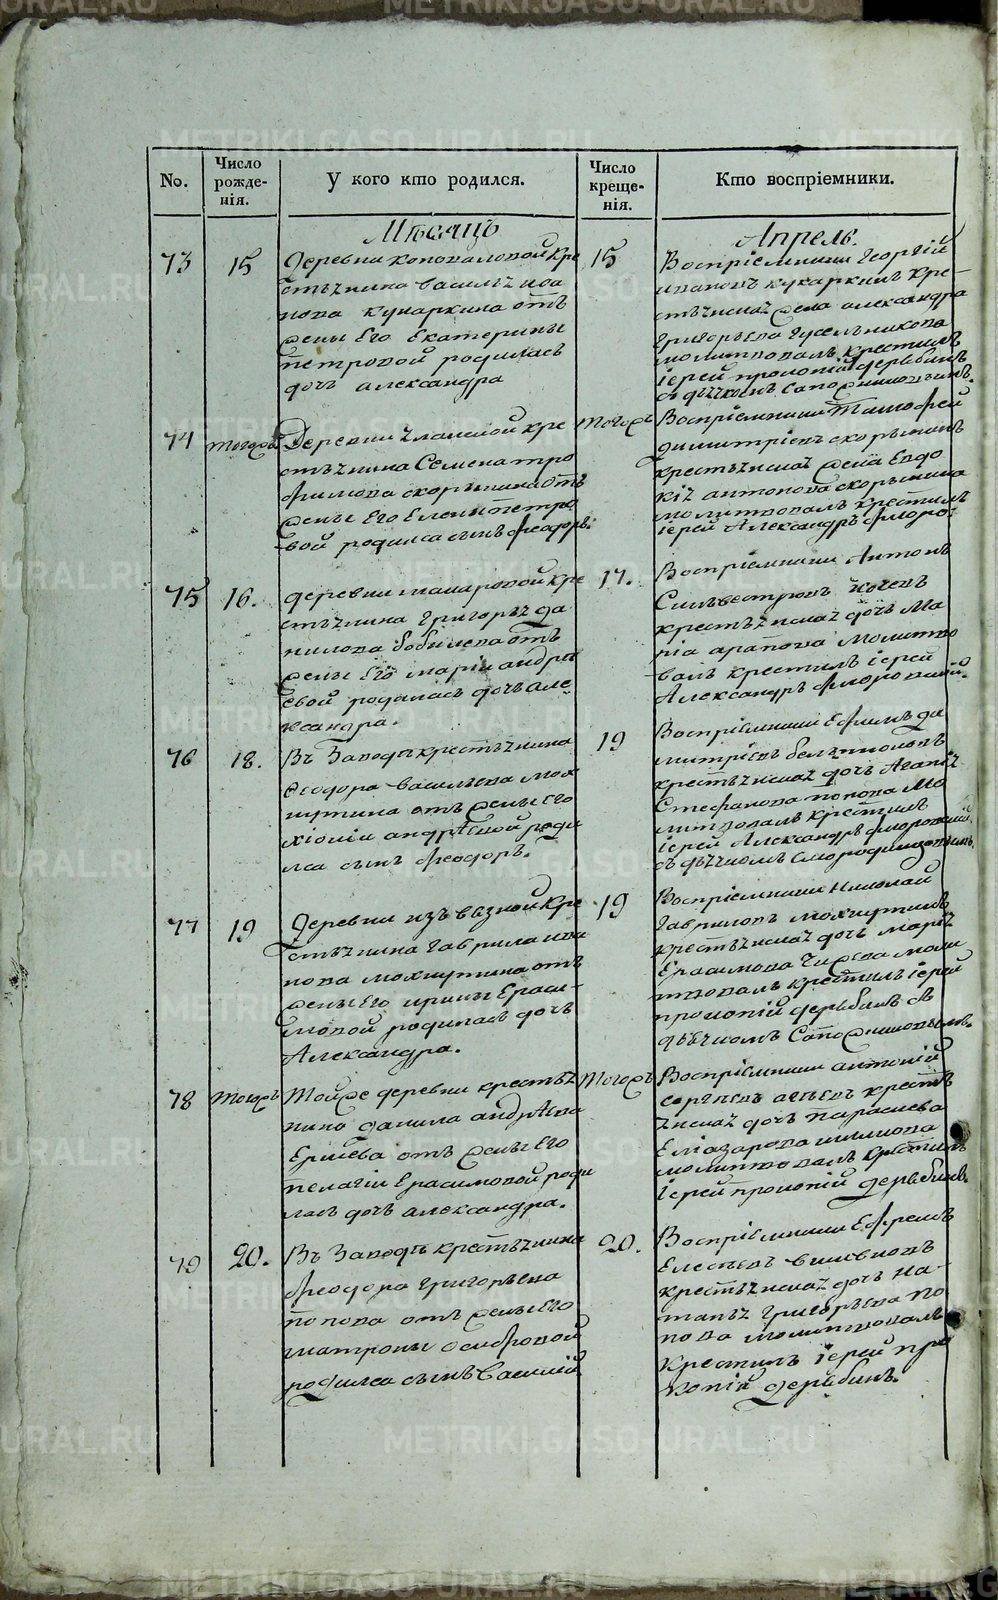 METRIKI.GASO-URAL.RU
No.
Число рожде-нія.
У кого кто родился.
Число креще-нія.
Кто воспріемники.
Мѣсяцъ
Апрель.
73
15
Деревни коноваловой кре
стьянина василья ива
нова кукаркина отъ
жены Его Екатерины
петровой родилась
дочь александра
15
Воспріемники Георгій
ивановъ кукаркинъ кре-
стьянскаѧ жена александра
григорьева
молитвовалъ крестилъ
іерей прокопій дерябинъ
съ дьячкомъ Сапожниковымъ.
74
тогожъ
Деревни кре
стьянина Семена тро
фимова скорынина отъ
жены Его Елены петро
вой родился сынъ Феодоръ.
тогожъ
Воспріемники Тимофей
димитріевъ
крестьянскаѧ жена Евдо
кіѧ антонова скорынина
молитвовалъ крестилъ
іерей Александръ
75
16.
деревни макаровой кре
стьянина григорьѧ да
нилова отъ
жены Его маріи андре
евой родилась дочь але
ксандра.
17.
Воспріемники Антонъ
Сильвестровъ
крестьянскаѧ дочь Ма
ріа молитво
валъ крестилъ іерей
Александръ
76
18.
Въ Заводѣ крестьянина
Феодора васильева мох
нутина отъ жены Его
хіоніи андрѣевой роди
лса сынъ Феодоръ.
19
Воспріемники Ефимъ ди
митріевъ
крестьянскаѧ дочь Агапіѧ
Стефанова попова мо
литвовалъ крестилъ
іерей Александръ
съ дьячкомъ
77
19
Деревни изъ вѣзной кре
стьянина гаврила ива
нова отъ
жены Его ирины Ераси-
мовой родилась дочь
Александра.
19
Воспріемники Николай
гавриловъ
крестьянскаѧ дочь маріѧ
Ерасимова моли
твовалъ крестилъ іерей
прокопій дерябинъ съ
дьячкомъ Сапожниковымъ.
78
тогожъ
Тойже деревни крестьѧ
нина данила андрѣева
Ершева отъ жены Его
пелагіи Ерасимовой роди
лась дочь александра.
тогожъ
Воспріемники антоній
сергѣевъ крестьѧ
нскаѧ дочь Параскева
Еліазарова
молитвовалъ крестилъ
іерей прокопій дерябинъ.
79
20.
Въ Заводѣ крестьянина
Феодора григорьева
попова отъ жены Его
матроны осиповой
родился сынъ Василій
20.
Воспріемники Ефремъ
крестьянскаѧ дочь На-
талья григорьева по
пова молитвовалъ
крестилъ іерей про
копій дерябинъ.